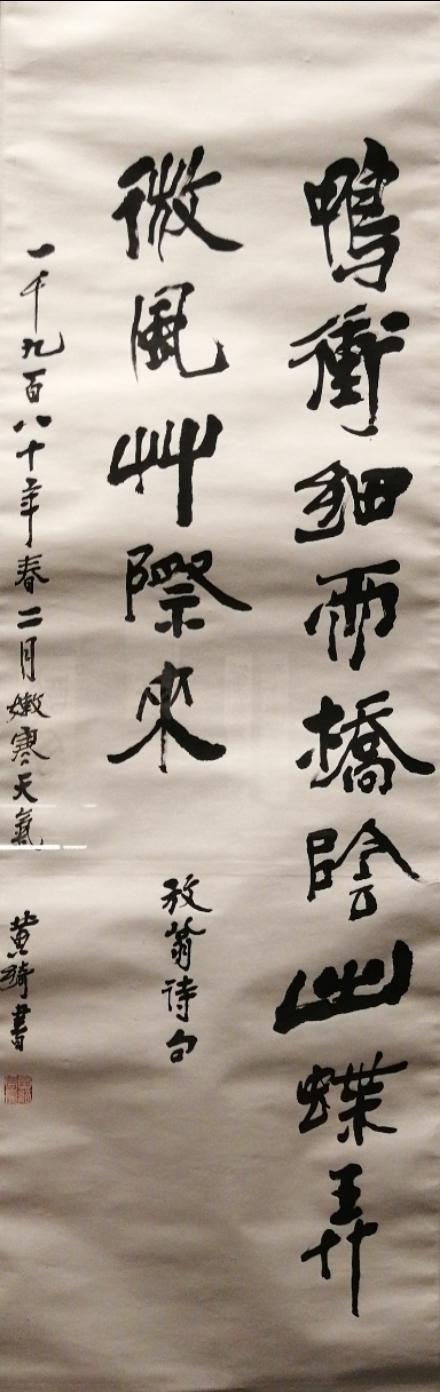 鴨衝細雨橋陰出蝶弄
微風艸際來
放翁诗句
一千九百八十年春二月嫩寒天氣
黄琦書